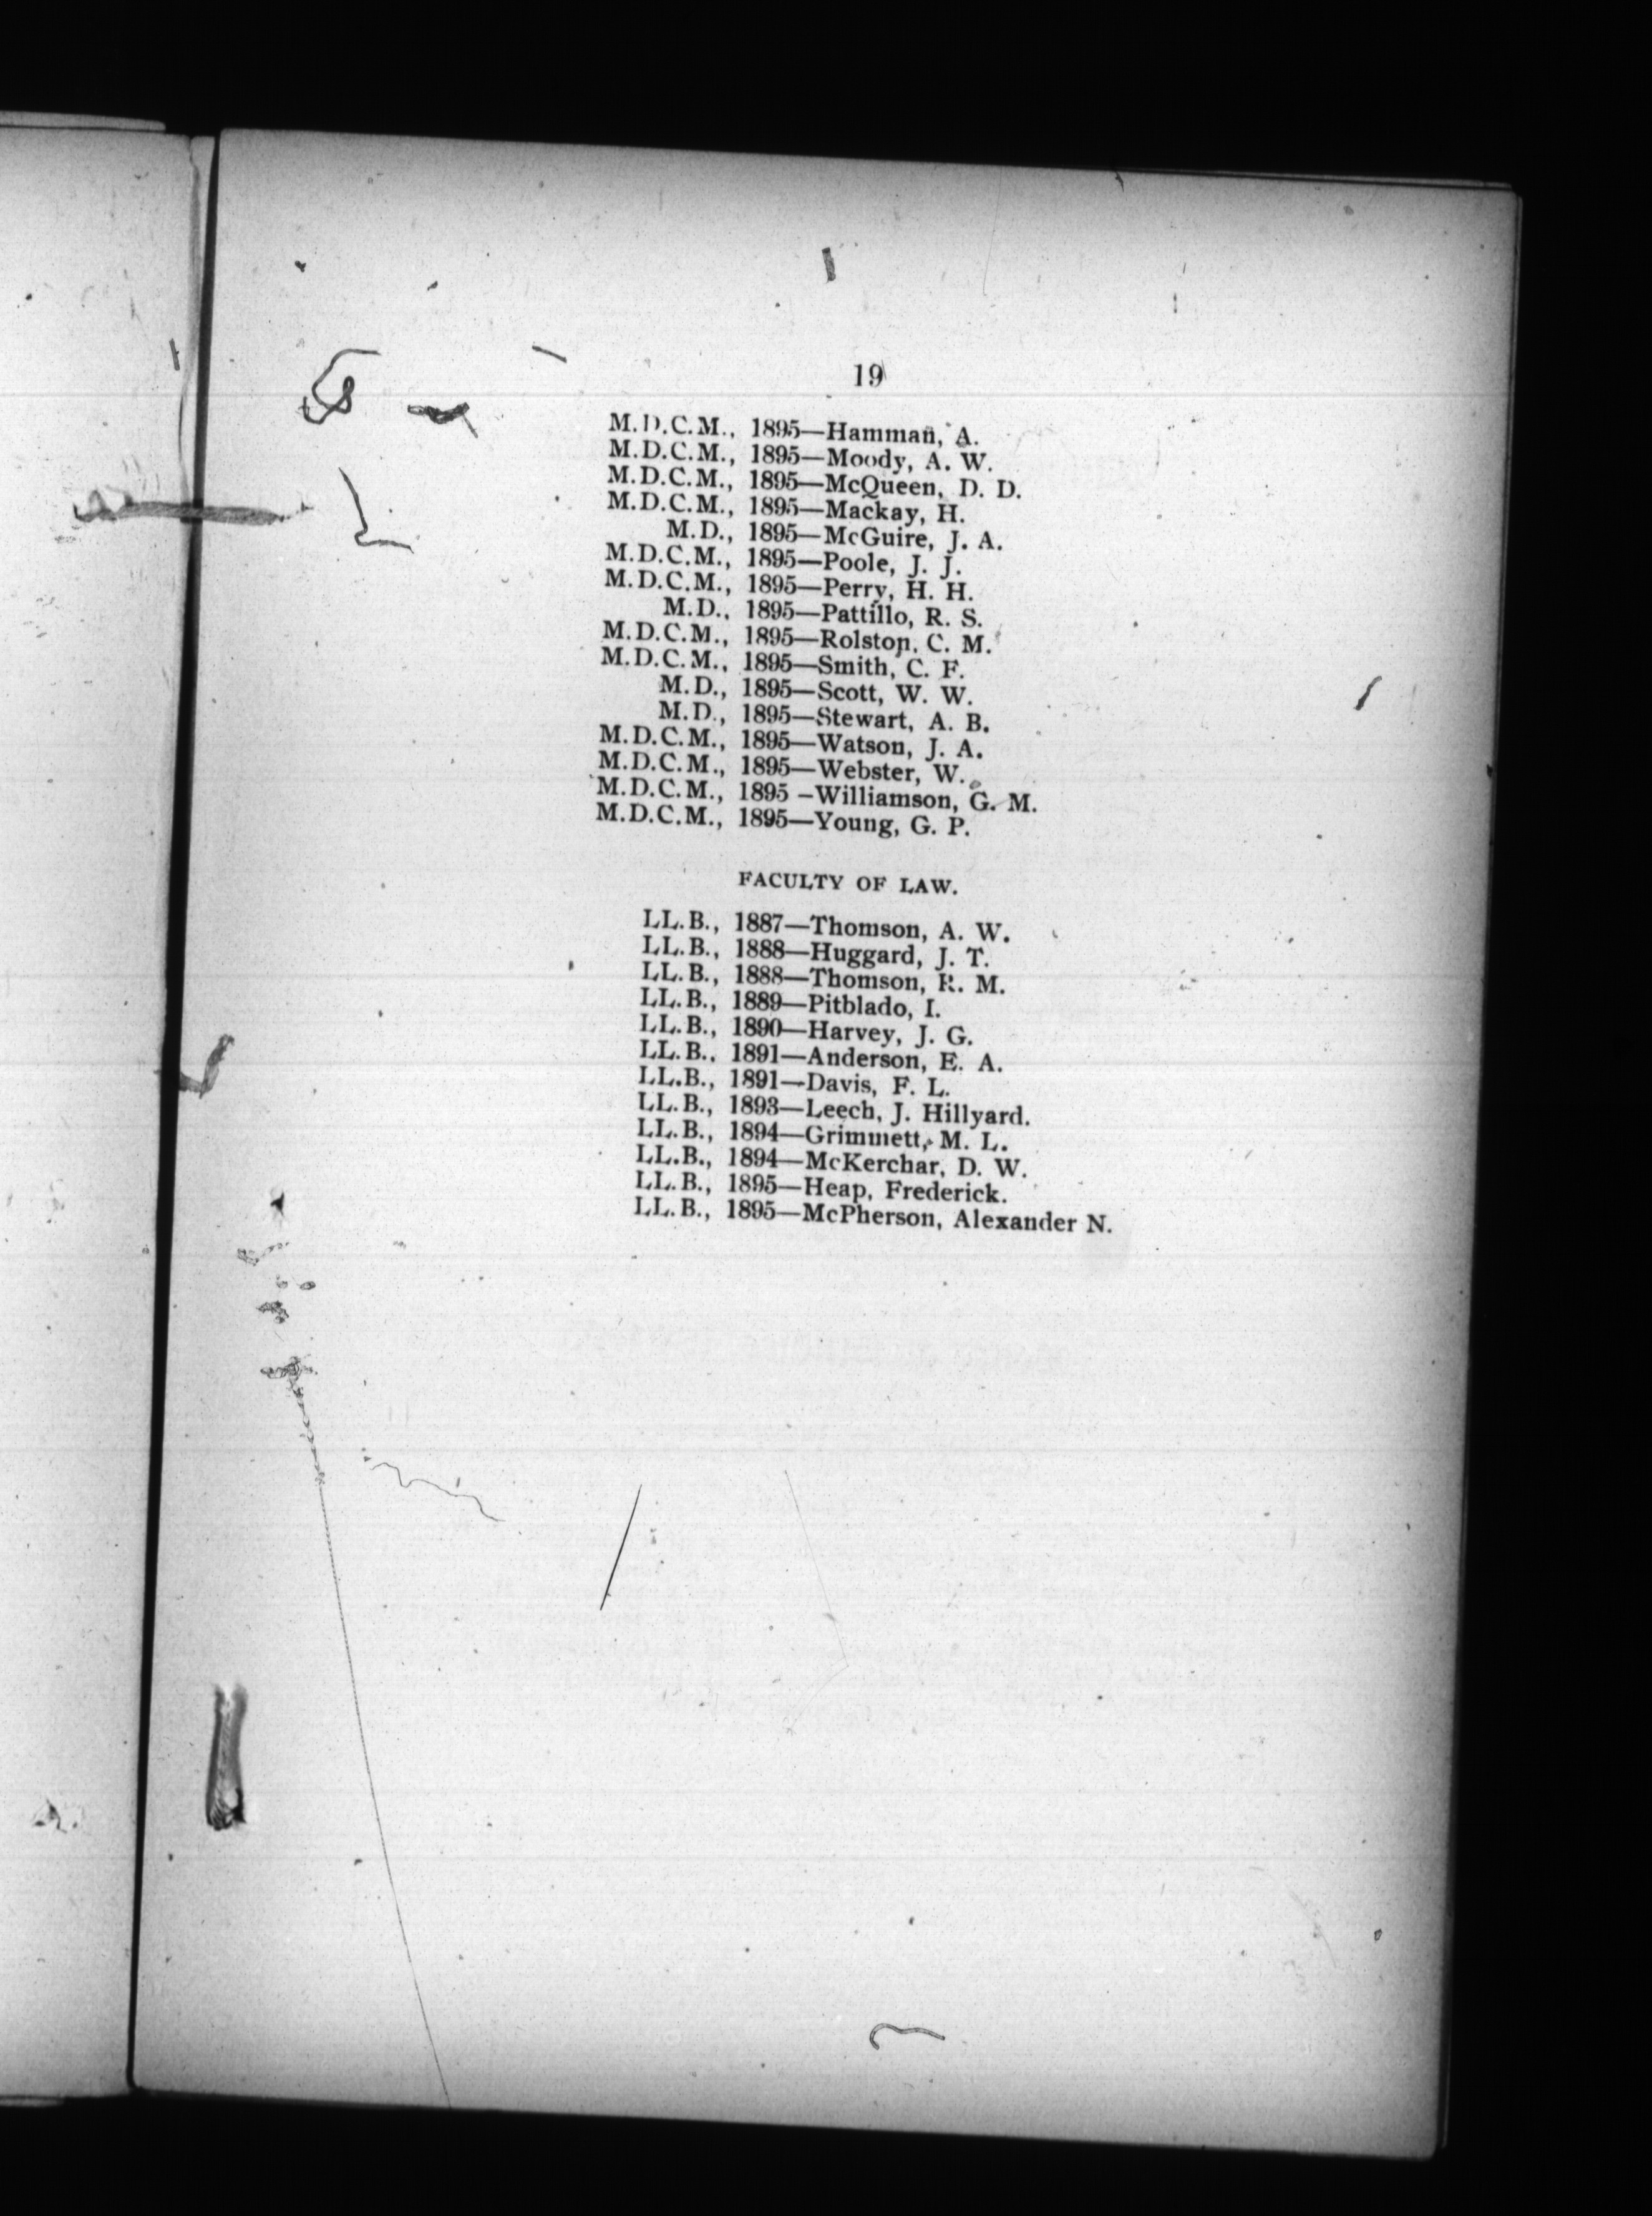 19
M.D.C.M., 1895—Hamman, A.
M.D.C.M., 1895—Moody, A. W.
M.D.C.M., 1895—McQueen, D. D.
M.D.C.M., 1895—Mackay, H.
M.D., 1895—McGuire, J. A.
M.D.C.M., 1895—Poole, J. J.
M.D.C.M., 1895—Perry, H. H.
M.D., 1895—Pattillo, R. S.
M.D.C.M., 1895—Rolston, C. M.
M.D.C.M., 1895—Smith, C. F.
M.D., 1895—Scott, W. W.
M.D., 1895—Stewart, A. B.
M.D.C.M., 1895—Watson, J. A.
M.D.C.M., 1895—Webster, W.
M.D.C.M., 1895–Williamson, G. M.
M.D.C.M., 1895—Young, G. P.
FACULTY OF LAW.
LL.B., 1887—Thomson, A. W.
LL.B., 1888—Huggard, J. T.
LL.B., 1888—Thomson, R. M.
LL.B., 1889—Pitblado, I.
LL.B., 1890—Harvey, J. G.
LL.B., 1891—Anderson, E. A.
LL.B., 1891—Davis, F. L.
LL.B., 1893—Leech, J. Hillyard.
LL.B., 1894—Grimmett, M. L.
LL.B., 1894—McKerchar, D. W.
LL.B., 1895—Heap, Frederick.
LL.B., 1895—McPherson, Alexander N.